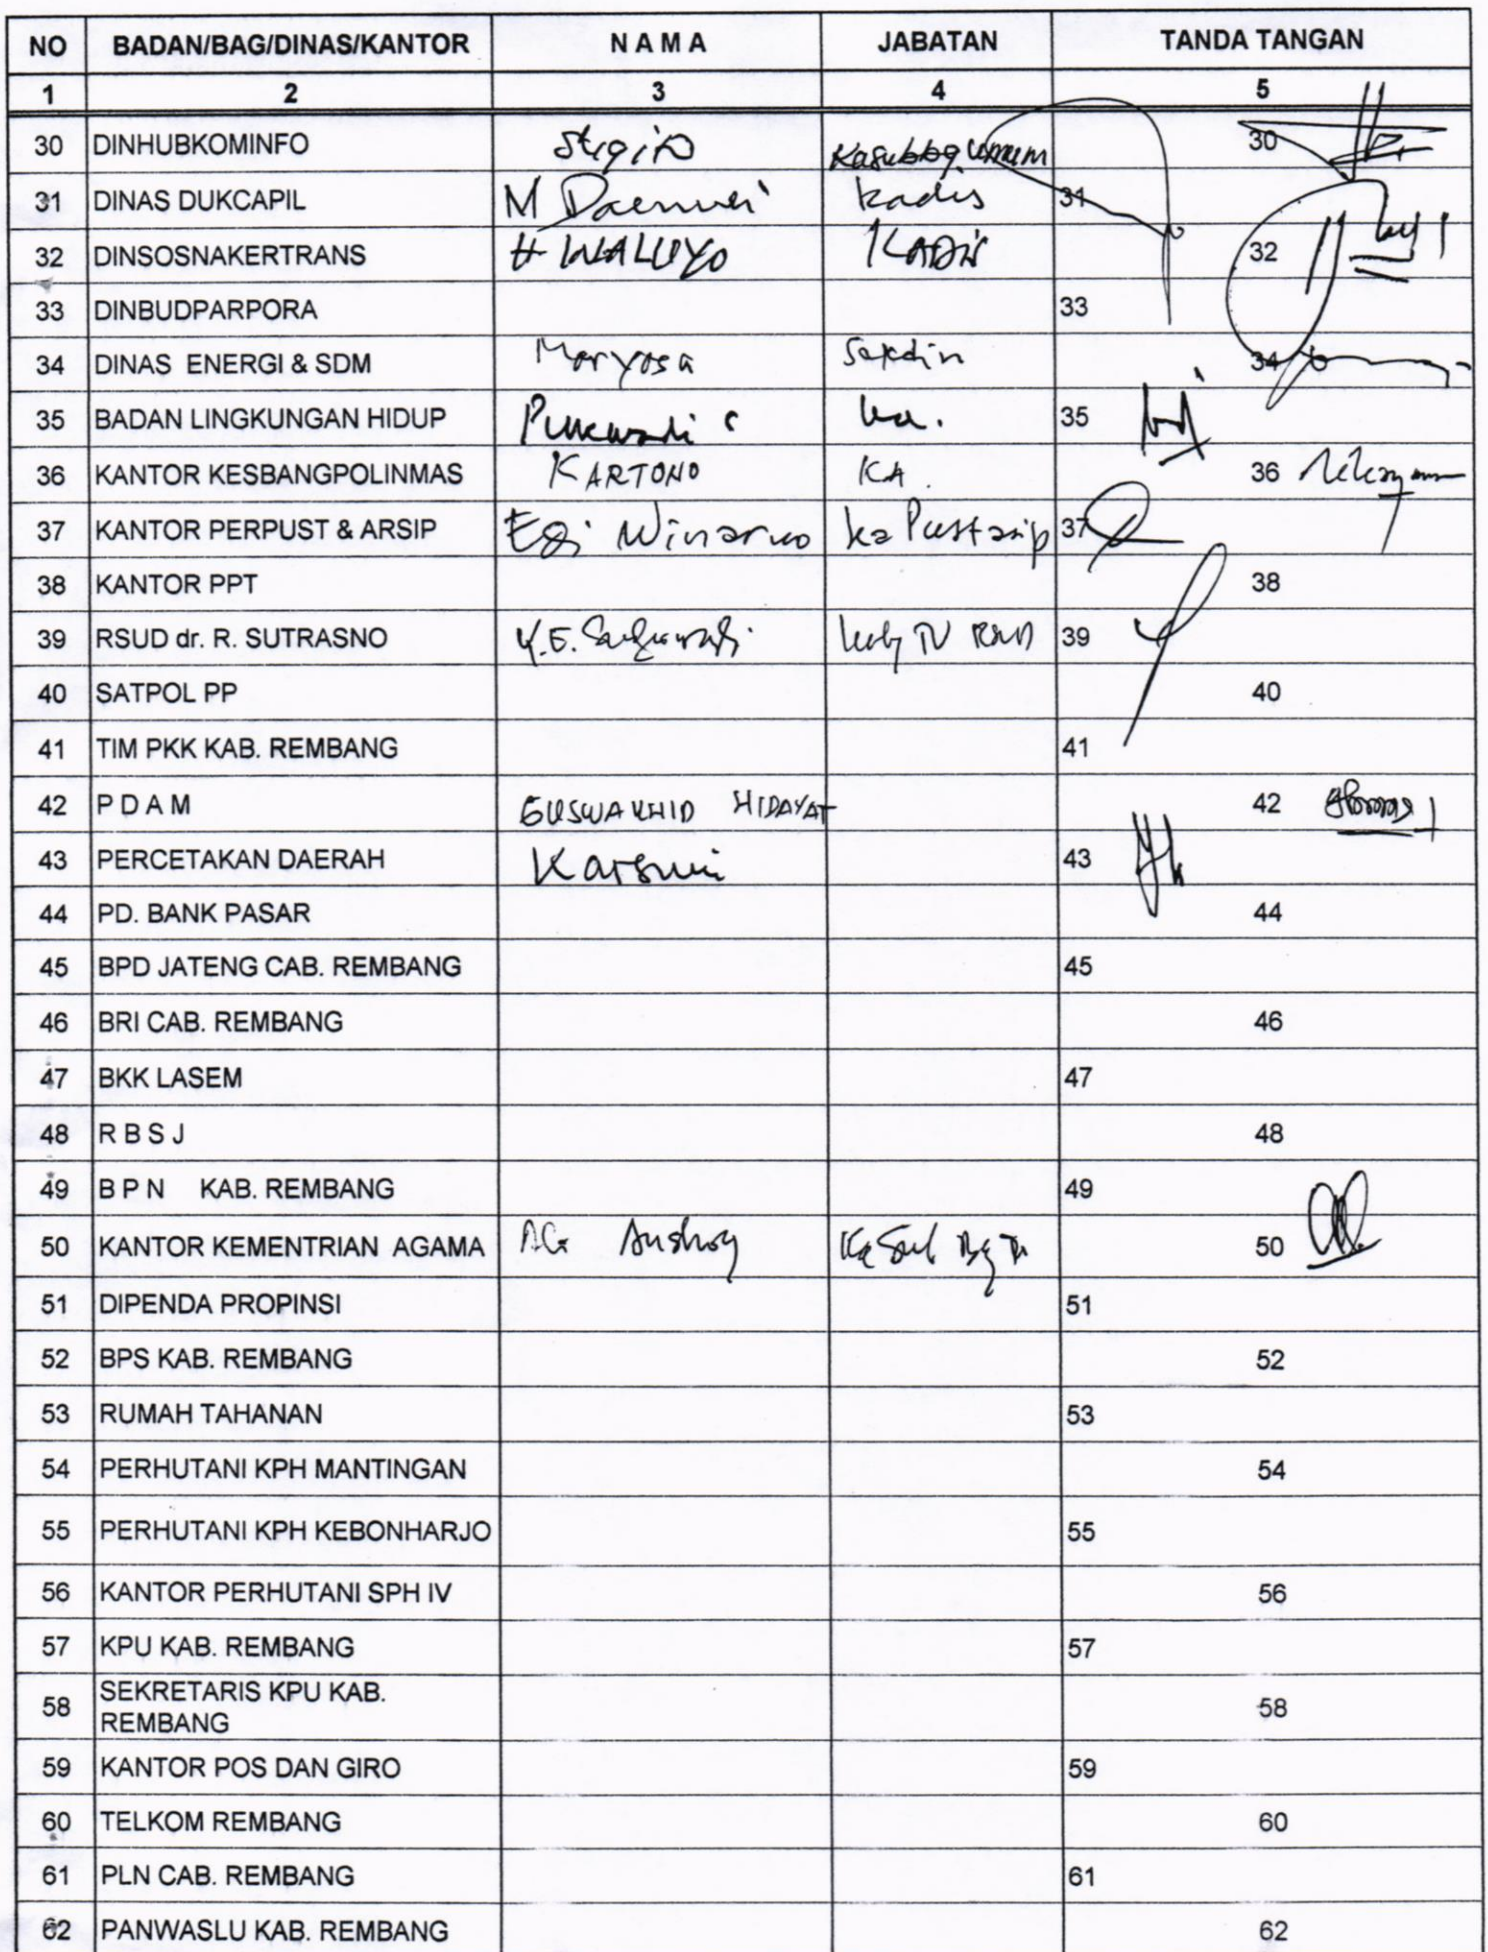 NO BADAN/BAG/DINAS/KANTOR N A M A JABATAN TANDA TANGAN
1 2 3 4 5
30 DINHUBKOMINFO Kasubbag Umum 30
31 DINAS DUKCAPIL M Kadis 31
32 DINSOSNAKERTRANS H WALUYO KADIS 32
33 DINBUDPARPORA 33
34 DINAS ENERGI & SDM Maryosa 34
35 BADAN LINGKUNGAN HIDUP Ka. 35
36 KANTOR KESBANGPOLINMAS KARTONO KA. 36
37 KANTOR PERPUST & ARSIP Winarno ka Pustasip 37
38 KANTOR PPT 38
39 RSUD dr. R. SUTRASNO 39
40 SATPOL PP 40
41 TIM PKK KAB. REMBANG 41
42 P D A M HIDAYAT 42
43 PERCETAKAN DAERAH 43
44 PD. BANK PASAR 44
45 BPD JATENG CAB. REMBANG 45
46 BRI CAB. REMBANG 46
47 BKK LASEM 47
48 R B S J 48
49 B P N KAB. REMBANG 49
50 KANTOR KEMENTRIAN AGAMA 50
51 DIPENDA PROPINSI 51
52 BPS KAB. REMBANG 52
53 RUMAH TAHANAN 53
54 PERHUTANI KPH MANTINGAN 54
55 PERHUTANI KPH KEBONHARJO 55
56 KANTOR PERHUTANI SPH IV 56
57 KPU KAB. REMBANG 57
58 SEKRETARIS KPU KAB. 58
REMBANG
59 KANTOR POS DAN GIRO 59
60 TELKOM REMBANG 60
61 PLN CAB. REMBANG 61
62 PANWASLU KAB. REMBANG 62